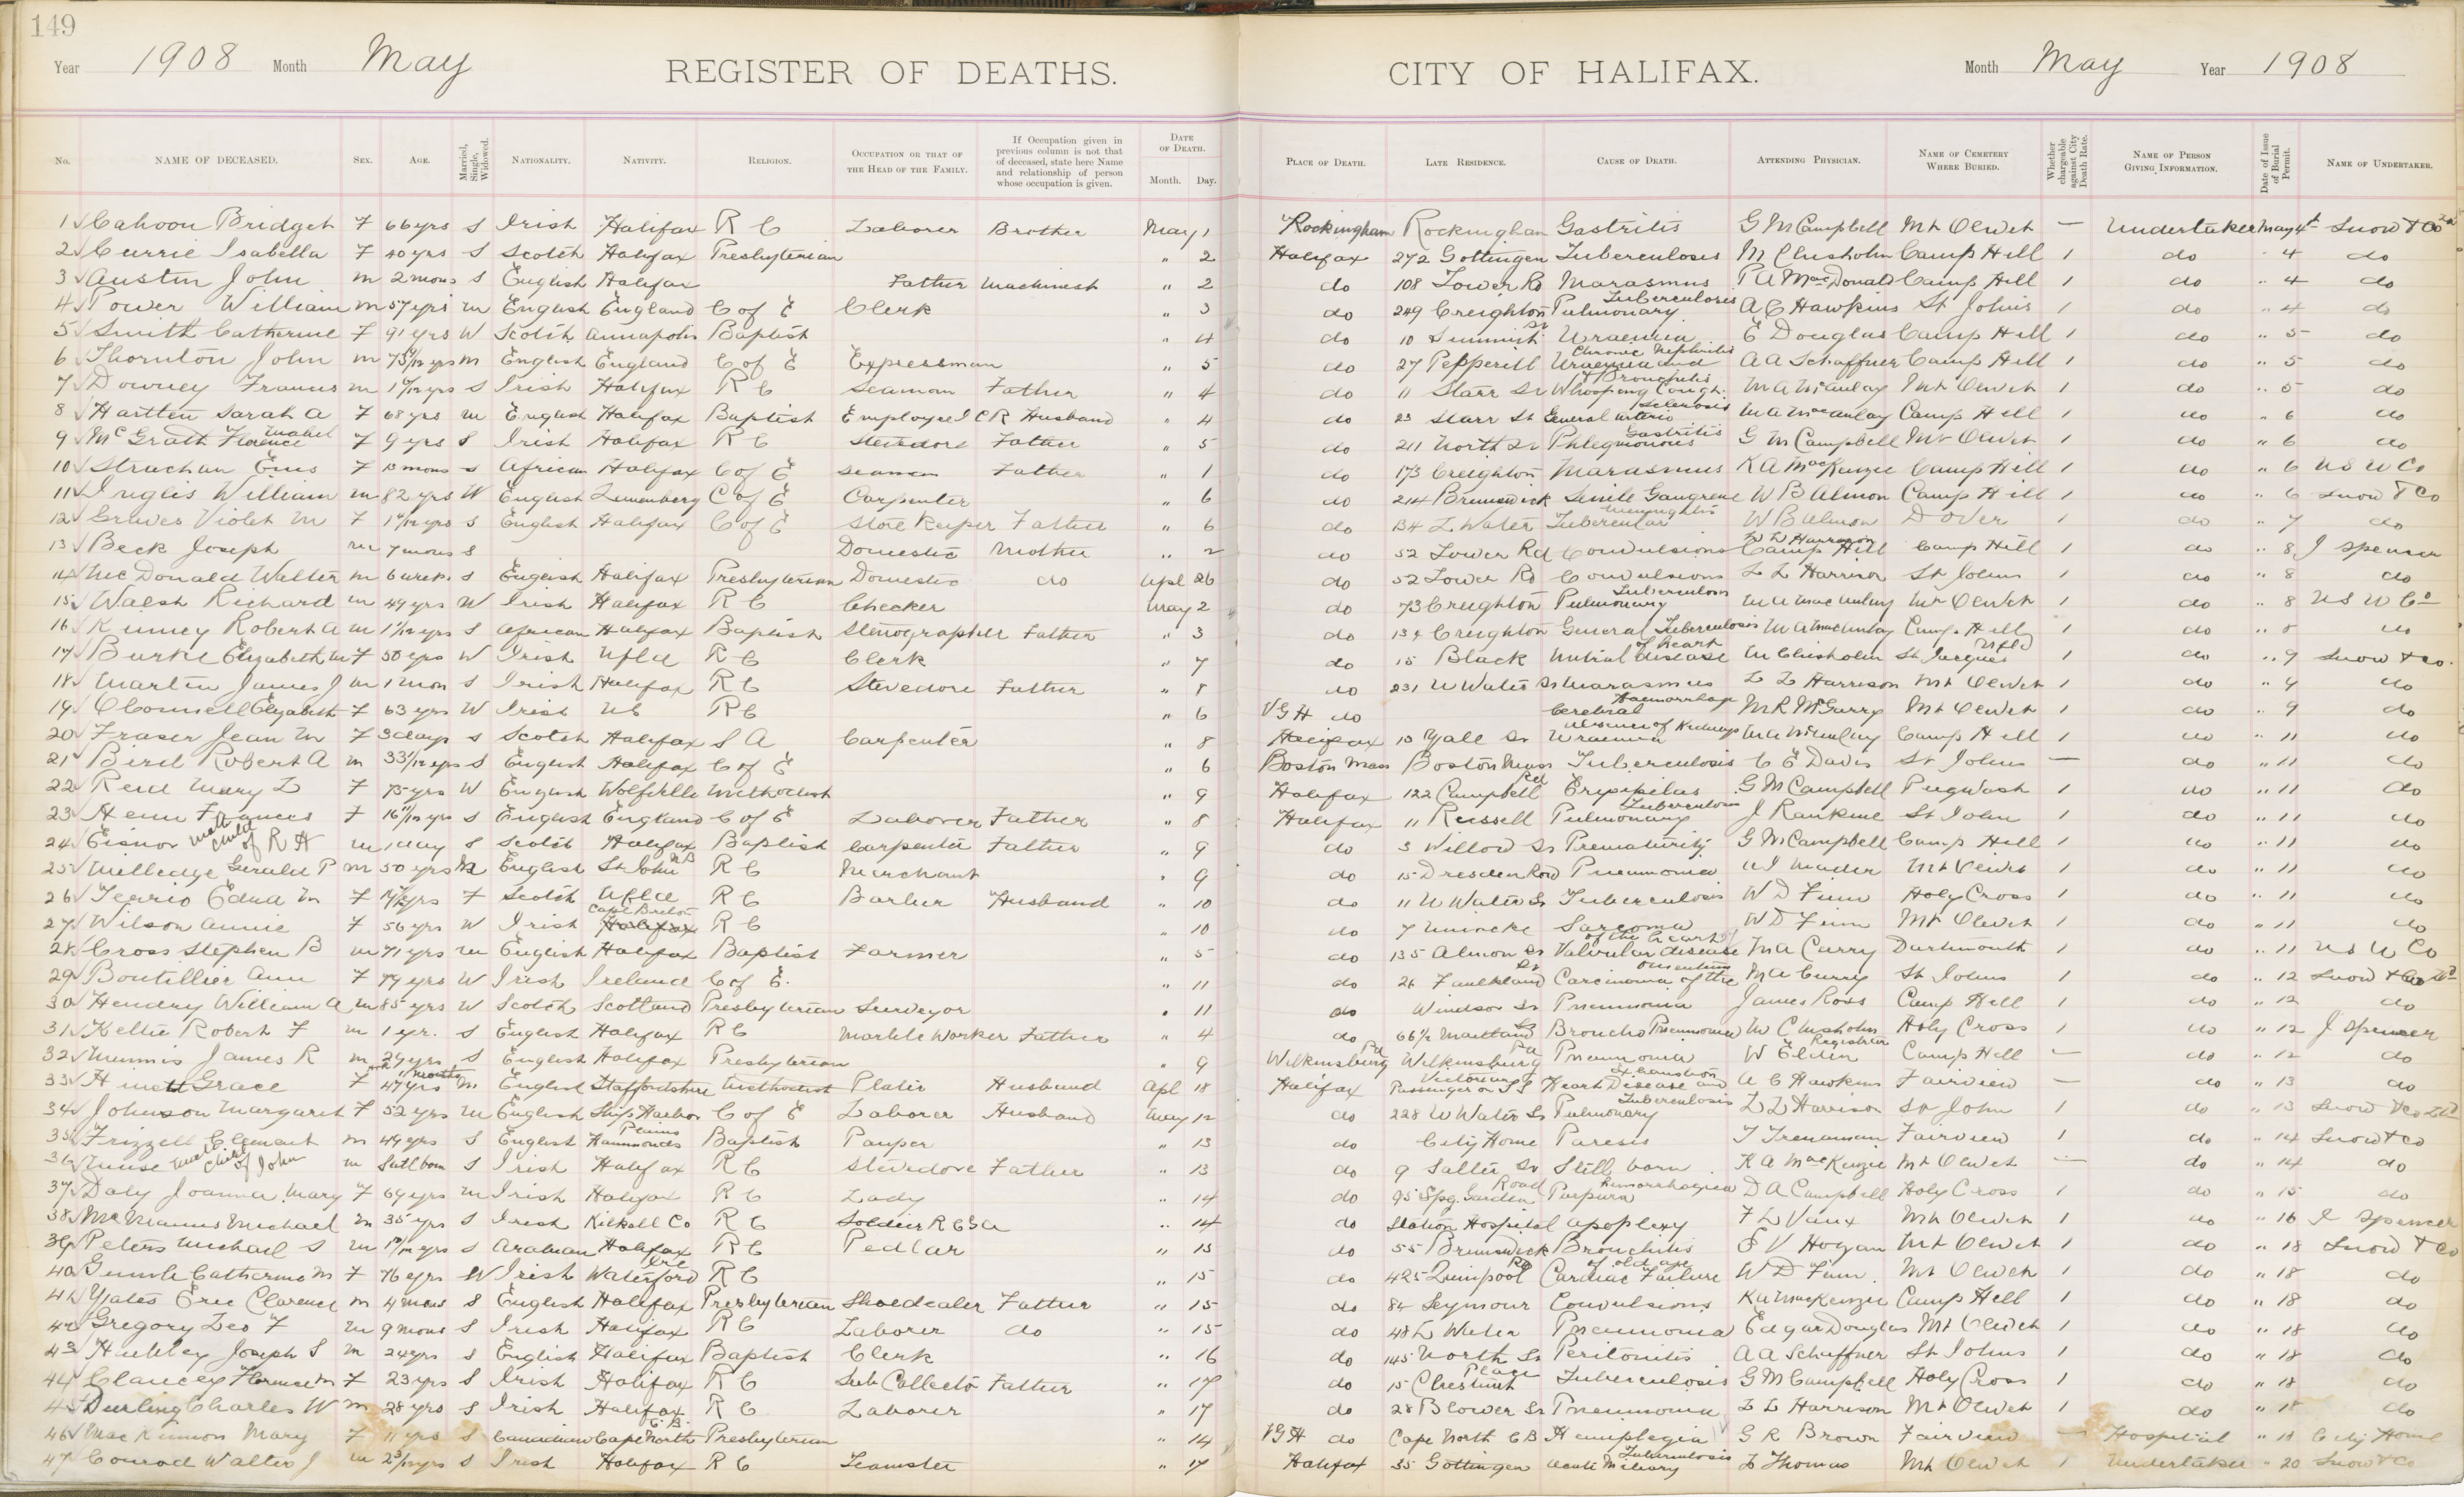 149
Year 1908 Month May REGISTER OF DEATHS. CITY OF HALIFAX. Month May Year 1908
No. NAME OF DECEASED. SEX. AGE. Married, Single, Widowed. NATIONALITY. NATIVITY. RELIGION. OCCUPATION OR THAT OF THE HEAD OF THE FAMILY. If Occupation given in previous column is not that of deceased, state here Name and relationship of person whose occupation is given. DATE OF DEATH. Month. Day. PLACE OF DEATH. LATE RESIDENCE. CAUSE OF DEATH. ATTENDING PHYSICIAN. NAME OF CEMETERY WHERE BURIED. Whether chargeable against City Death Rate. NAME OF PERSON GIVING INFORMATION. Date of Issue of Burial Permit. NAME OF UNDERTAKER.
1 Cahoon Bridget F 66 yrs S Irish Halifax R C Laborer Brother May 1 Rockingham Rockingham Gastritis G M Campbell Mt Olivet — Undertaker May 4 Snow & Co
2 Currie Isabella F 40 yrs S Scotch Halifax Presbyterian " 2 Halifax 272 Gottingen Tuberculosis M Chisholm Camp Hill 1 do " 4 do
3 Austin John m 2 mons S English Halifax Father Machinist " 2 do 108 Tower Rd Marasmus P A MacDonald Camp Hill 1 do " 4 do
4 Power William m 57 yrs m English England C of E Clerk " 3 do 249 Creighton Pulmonary Tuberculosis A C Hawkins St Johns 1 do " 4 do
5 Smith Catherine F 91 yrs W Scotch Annapolis Baptist " 4 do 10 Summit St Uraemia E Douglas Camp Hill 1 do " 5 do
6 Thornton John m yrs m English England C of E Expressman " 5 do 27 Pepperell Uraemia and Chronic Nephritis A A Schaffner Camp Hill 1 do " 5 do
7 Downey Francis m yrs S Irish Halifax R C Seaman Father " 4 do 11 Starr St Whooping Cough & Bronchitis M A McAulay Mt Olivet 1 do " 5 do
8 Hartlen Sarah A F 68 yrs m English Halifax Baptist Employee I C R Husband " 4 do 23 Starr St General Arterio Sclerosis M A MacAulay Camp Hill 1 do " 6 do
9 McGrath Florence Mabel F 9 yrs S Irish Halifax R C Stevedore Father " 5 do 211 North St Phlegmonous Gastritis G M Campbell Mt Olivet 1 do " 6 do
10 Strachan F 13 mons S African Halifax C of E Seaman Father " 1 do 173 Creighton Marasmus K A MacKenzie Camp Hill 1 do " 6 N S U Co
11 Inglis William m 82 yrs W English Lunenburg C of E Carpenter " 6 do 214 Brunswick Senile Gangrene W B Almon Camp Hill 1 do " 6 Snow & Co
12 Graves Violet M F yrs S English Halifax C of E Store Keeper Father " 6 do 134 L Water Tubercular Meningitis W B Almon Dover 1 do " 7 do
13 Beck Joseph m 7 mons S Domestic Mother " 2 do 52 Tower Rd Convulsions L L Harrison Camp Hill Camp Hill 1 do " 8 J Spencer
14 McDonald Walter m 6 weeks S English Halifax Presbyterian Domestic do Apl 26 do 52 Tower Rd Convulsions L L Harrison St Johns 1 do " 8 do
15 Walsh Richard m 49 yrs W Irish Halifax R C Checker May 2 do 73 Creighton Pulmonary Tuberculosis M A MacAulay Mt Olivet 1 do " 8 N S U Co
16 Kinney Robert A m yrs S African Halifax Baptist Stenographer Father " 3 do 134 Creighton General Tuberculosis M A MacAulay Camp Hill 1 do " 8 do
17 Burke Elizabeth M F 50 yrs W Irish Nfld R C Clerk " 7 do 15 Black Mitral disease of heart M Chisholm St Jacques Nfld 1 do " 9 Snow & Co.
18 Martin James J m 1 mon S Irish Halifax R C Stevedore Father " 8 do 231 U Water St Marasmus L L Harrison Mt Olivet 1 do " 9 do
19 OConnell Elizabeth F 63 yrs W Irish R C " 6 V G H do Cerebral Haemorrhage M R McGarry Mt Olivet 1 do " 9 do
20 Fraser Jean M F 3 days S Scotch Halifax S A Carpenter " 8 Halifax 10 Yale St Uraemia of Kidneys M A McAulay Camp Hill 1 do " 11 do
21 Bird Robert A m yrs S English Halifax C of E " 6 Boston Mass Boston Mass Tuberculosis C E Davis St Johns — do " 11 do
22 Reid Mary L F 75 yrs W English Wolfville Methodist " 9 Halifax 122 Campbell Rd Erysipilas G M Campbell Pugwash 1 do " 11 do
23 Henn Frances F 16 11/12 yrs S English England C of E Laborer Father " 8 Halifax 11 Russell Pulmonary Tuberculosis J Rankine St John 1 do " 11 do
24 Eisnor male child of R H m 1 day S Scotch Halifax Baptist Carpenter Father " 9 do 3 Willow St Prematurity G M Campbell Camp Hill 1 do " 11 do
25 Milledge Gerald P m 50 yrs M English St John NB R C Merchant " 9 do 15 Dresden Row Pneumonia A I Mader Mt Olivet 1 do " 11 do
26 Edna M F yrs F Scotch Nfld R C Barber Husband " 10 do 11 U Water St Tuberculosis W D Finn Holy Cross 1 do " 11 do
27 Wilson Annie F 56 yrs W Irish Cape Breton Halifax R C " 10 do 7 Uniacke Sarcoma W D Finn Mt Olivet 1 do " 11 do
28 Cross Stephen B m 71 yrs m English Halifax Baptist Farmer " 5 do 135 Almon St Valvular disease of the heart M A Curry Dartmouth 1 do " 11 N S U Co
29 Boutillier Ann F 79 yrs W Irish Ireland C of E. " 11 do 26 Faulkland St Carcinoma of the Omentum M A Curry St Johns 1 do " 12 Snow & Co
30 Hendry William A m 85 yrs W Scotch Scotland Presbyterian Surveyor " 11 do Windsor St Pneumonia James Ross Camp Hill 1 do " 12 do
31 Kellie Robert F m 1 yr. S English Halifax R C Marble Worker Father " 4 do 66½ Maitland St Broncho Pneumonia M Chisholm Holy Cross 1 do " 12 J Spencer
32 James R m 29 yrs S English Halifax Presbyterian " 9 Wilkinsburg Pa Wilkinsburg Pa Pneumonia W Registrar Camp Hill — do " 12 do
33 Hinett Grace F 47 yrs m English Staffordshire Methodist Plater Husband Apl 18 Halifax Passenger on S S Victorian Heart Disease and exhaustion A C Hawkins Fairview — do " 13 do
34 Johnson Margaret F 52 yrs m English Ship Harbor C of E Laborer Husband May 12 do 228 U Water St Pulmonary Tuberculosis L L Harrison St John 1 do " 13 Snow & Co Ltd
35 Frizzell Clement m 49 yrs S English Hammonds Plains Baptist Pauper " 13 do City Home Paresis T Trenaman Fairview 1 do " 14 Snow & Co
36 male child of John m Still born S Irish Halifax R C Stevedore Father " 13 do 9 Salter St Still born K A MacKenzie Mt Olivet — do " 14 do
37 Daly Joanna Mary F 69 yrs m Irish Halifax R C Lady " 14 do 95 Spg. Garden Road Purpura Hemorrhagica D A Campbell Holy Cross 1 do " 15 do
38 McManus Michael m 35 yrs S Irish R C Soldier R C G A " 14 do Station Hospital Apoplexy F L Vaux Mt Olivet 1 do " 16 J Spencer
39 Peters Michael S m yrs S Arabian Halifax R C Pedlar " 15 do 55 Brunswick Bronchitis E V Hogan Mt Olivet 1 do " 18 Snow & Co
40 Catherine M F 76 yrs W Irish Waterford Ire R C " 15 do 425 Quinpool Rd Cardiac Failure of old age W D Finn Mt Olivet 1 do " 18 do
41 Yates Eric Clarence m 4 mons S English Halifax Presbyterian Shoedealer Father " 15 do 84 Seymour Convulsions K A MacKenzie Camp Hill 1 do " 18 do
42 Gregory Leo F m 9 mons S Irish Halifax R C Laborer do " 15 do 48 L Water Pneumonia Edgar Douglas Mt Olivet 1 do " 18 do
43 Hubley Joseph S m 24 yrs S English Halifax Baptist Clerk " 16 do 145 North St Peritonitis A A Schaffner St Johns 1 do " 18 do
44 Clancey Florence M F 23 yrs S Irish Halifax R C Sub Collector Father " 17 do 15 Chestnut Place Tuberculosis G M Campbell Holy Cross 1 do " 18 do
45 Durling Charles W m 28 yrs S Irish Halifax R C Laborer " 17 do 28 Blower St Pneumonia L L Harrison Mt Olivet 1 do " 18 do
46 MacKinnon Mary F 11 yrs S Canadian Cape North C.B. Presbyterian " 14 V G H do Cape North C B Hemplegia G R Brown Fairview — Hospital " City Home
47 Conrad Walter J m yrs S Irish Halifax R C Teamster " 17 Halifax 35 Gottingen Acute Miliary Tuberculosis L Thomas Mt Olivet 1 Undertaker " 20 Snow & Co